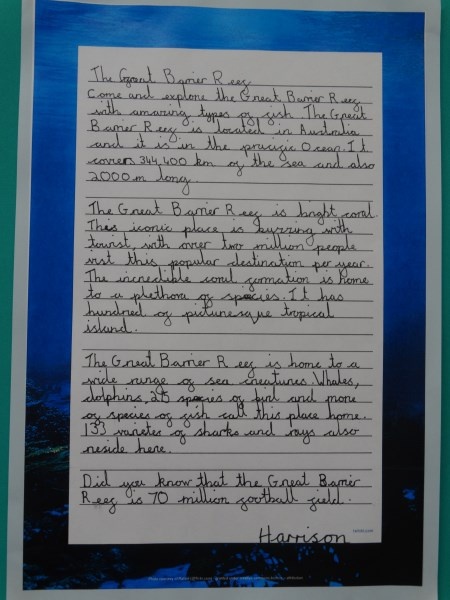 The Great Barrier Reef
Come and explore the Great Barrier Reef
with amazing types of fish. The Great
Barrier Reef is located in Australia
and it is in the pacific Ocean. It
covers 344,400 km of the sea and also
2000m long.
The Great Barrier Reef is bright coral.
This iconic place is buzzing with
tourist with over two million people
visit this popular destination per year.
The incredible coral formation is home
to a plethora of species. It has
hundred of picturesque tropical
island.
The Great Barrier Reef is home to a
wide range of sea creatures. Whales,
dolphins, 215 species of bird and more
of species of fish call this place home.
133 varietes of sharks and rays also
reside here.
Did you know that the Great Barrier
Reef is 70 million football field.
Harrison